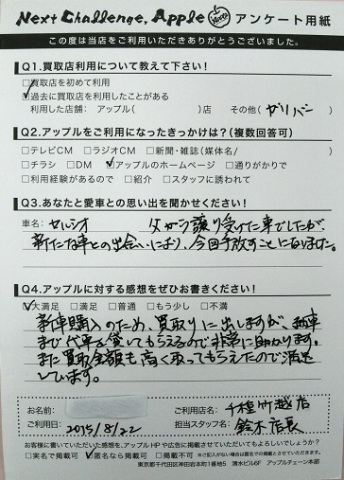 Next Challenge, Apple アンケート用紙
この度は当店をご利用いただきありがとうございました。
Q1.買取店利用について教えて下さい!
□買取店を初めて利用
☑過去に買取店を利用したことがある
利用した店舗: アップル( )店 その他( ガリバー )
Q2.アップルをご利用になったきっかけは?(複数回答可)
□テレビCM □ラジオCM □新聞・雑誌(媒体名/ )
□チラシ □DM ☑アップルのホームページ □通りがかりで
□利用経験があるので □紹介 □スタッフに誘われて
Q3.あなたと愛車との思い出を聞かせください!
車名: セルシオ 父から譲り受けた車でしたが、
新たな車との出会いにより、今回手放すことになりました。
Q4.アップルに対する感想をぜひお書きください!
☑大満足 □満足 □普通 □もう少し □不満
新車購入のため、買取りに出しますが、納車
まで代車を貸してもらえるので非常に助かります。
また買取金額も高く取ってもらえたので満足
しています。
お名前:
ご利用店名: 千種竹越店
ご利用日: 2015/8/22
担当スタッフ名: 鈴木店長
お客様に書いていただいた感想を、アップルHPや広告に掲載させていただいてもよろしいでしょうか?
□実名で掲載可 ☑匿名なら掲載可 □掲載不可 ※ご記入がない場合は匿名での掲載とさせていただきます。
東京都千代田区神田岩本町1番地5 清水ビル6F アップルチェーン本部